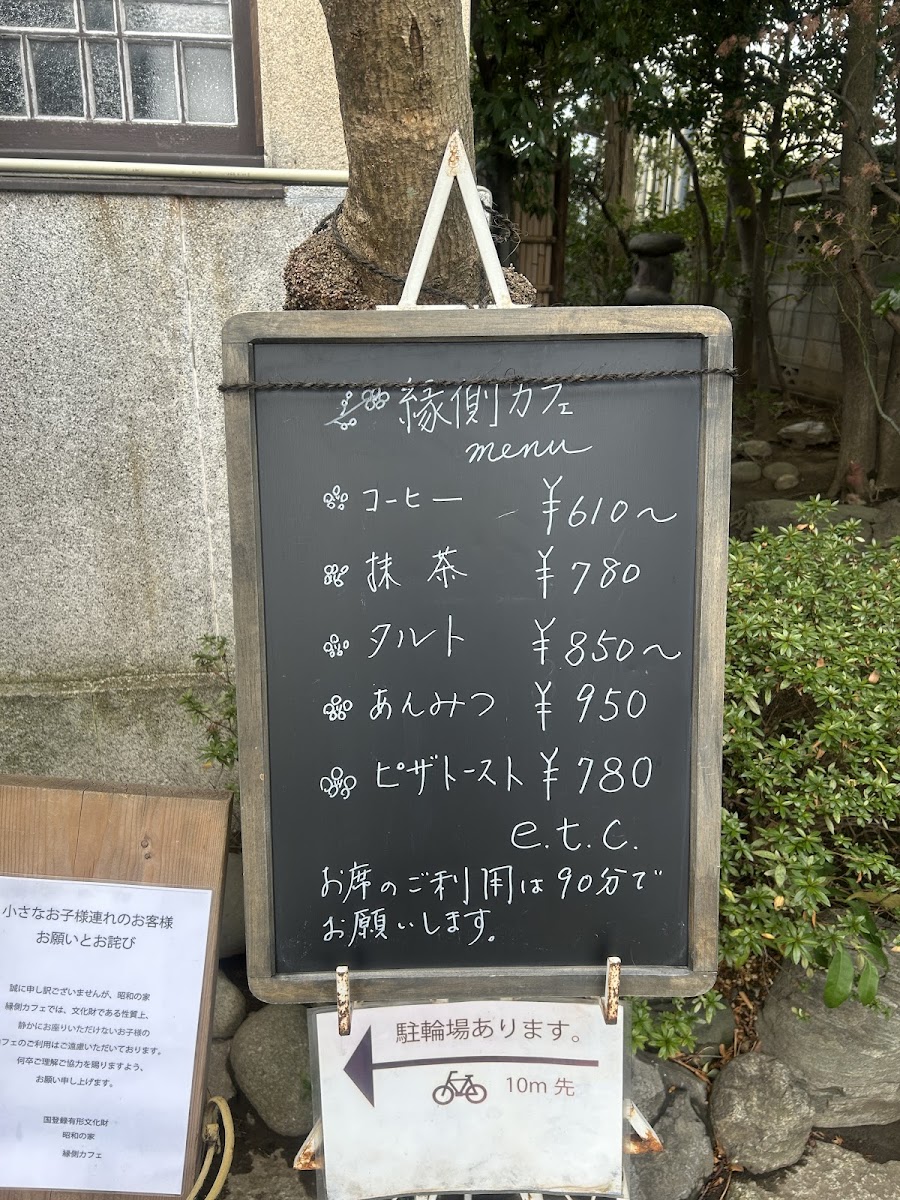 縁側カフェ
menu
コーヒー ¥610〜
抹茶 ¥780
タルト ¥850〜
あんみつ ¥950
ピザトースト ¥780
e.t.c.
お席のご利用は90分で
お願いします。
駐輪場あります。
10m 先
小さなお子様連れのお客様
お願いとお詫び
誠に申し訳ございませんが、昭和の家
縁側カフェでは、文化財である性質上、
静かにお座りいただけないお子様の
カフェのご利用はご遠慮いただいております。
何卒ご理解ご協力を賜りますよう、
お願い申し上げます。
国登録有形文化財
昭和の家
縁側カフェ